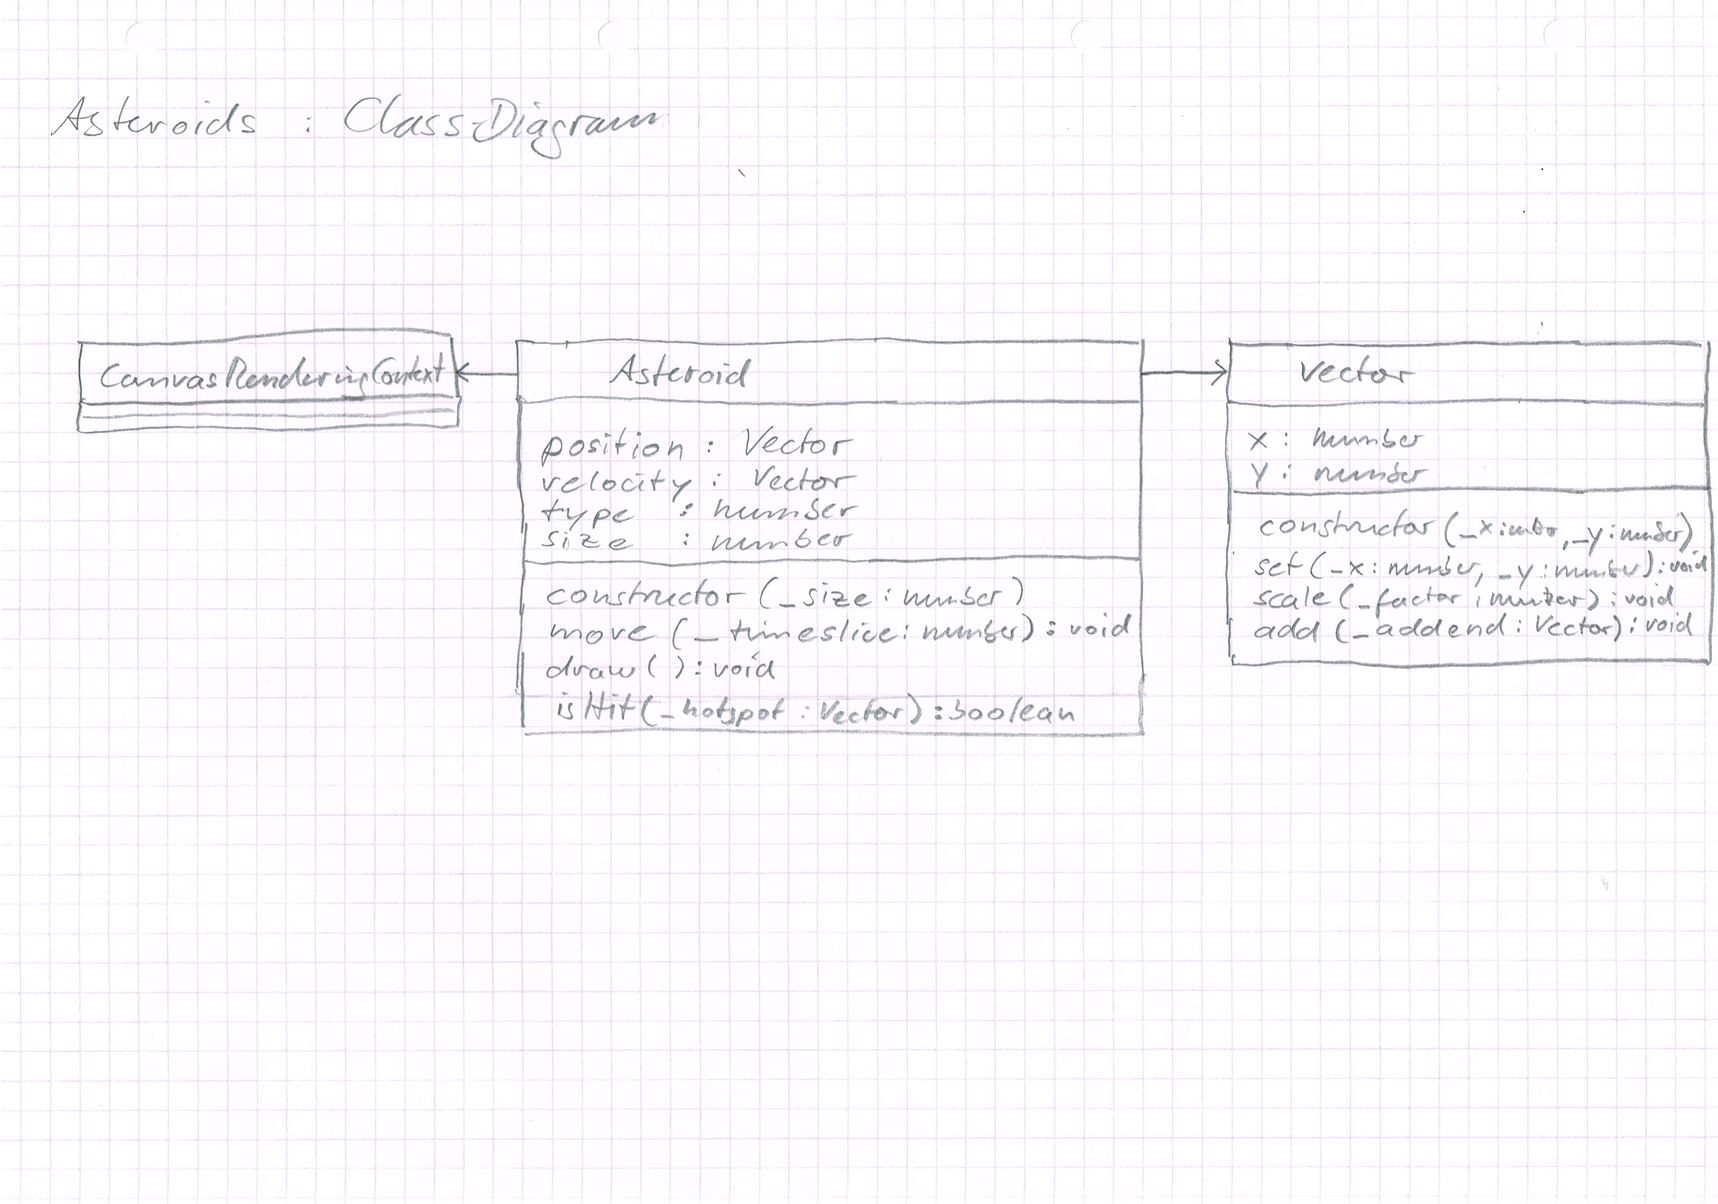 Asteroids : Class-Diagram
CanvasRenderingContext
Asteroid
position : Vector
velocity : Vector
type : number
size : number
constructor (_size : number)
move (_timeslice : number) : void
draw () : void
isHit (_hotspot : Vector) : boolean
Vector
x : number
y : number
constructor (_x : , _y : number)
set (_x : number, _y : number) : void
scale (_factor : number) : void
add (_addend : Vector) : void